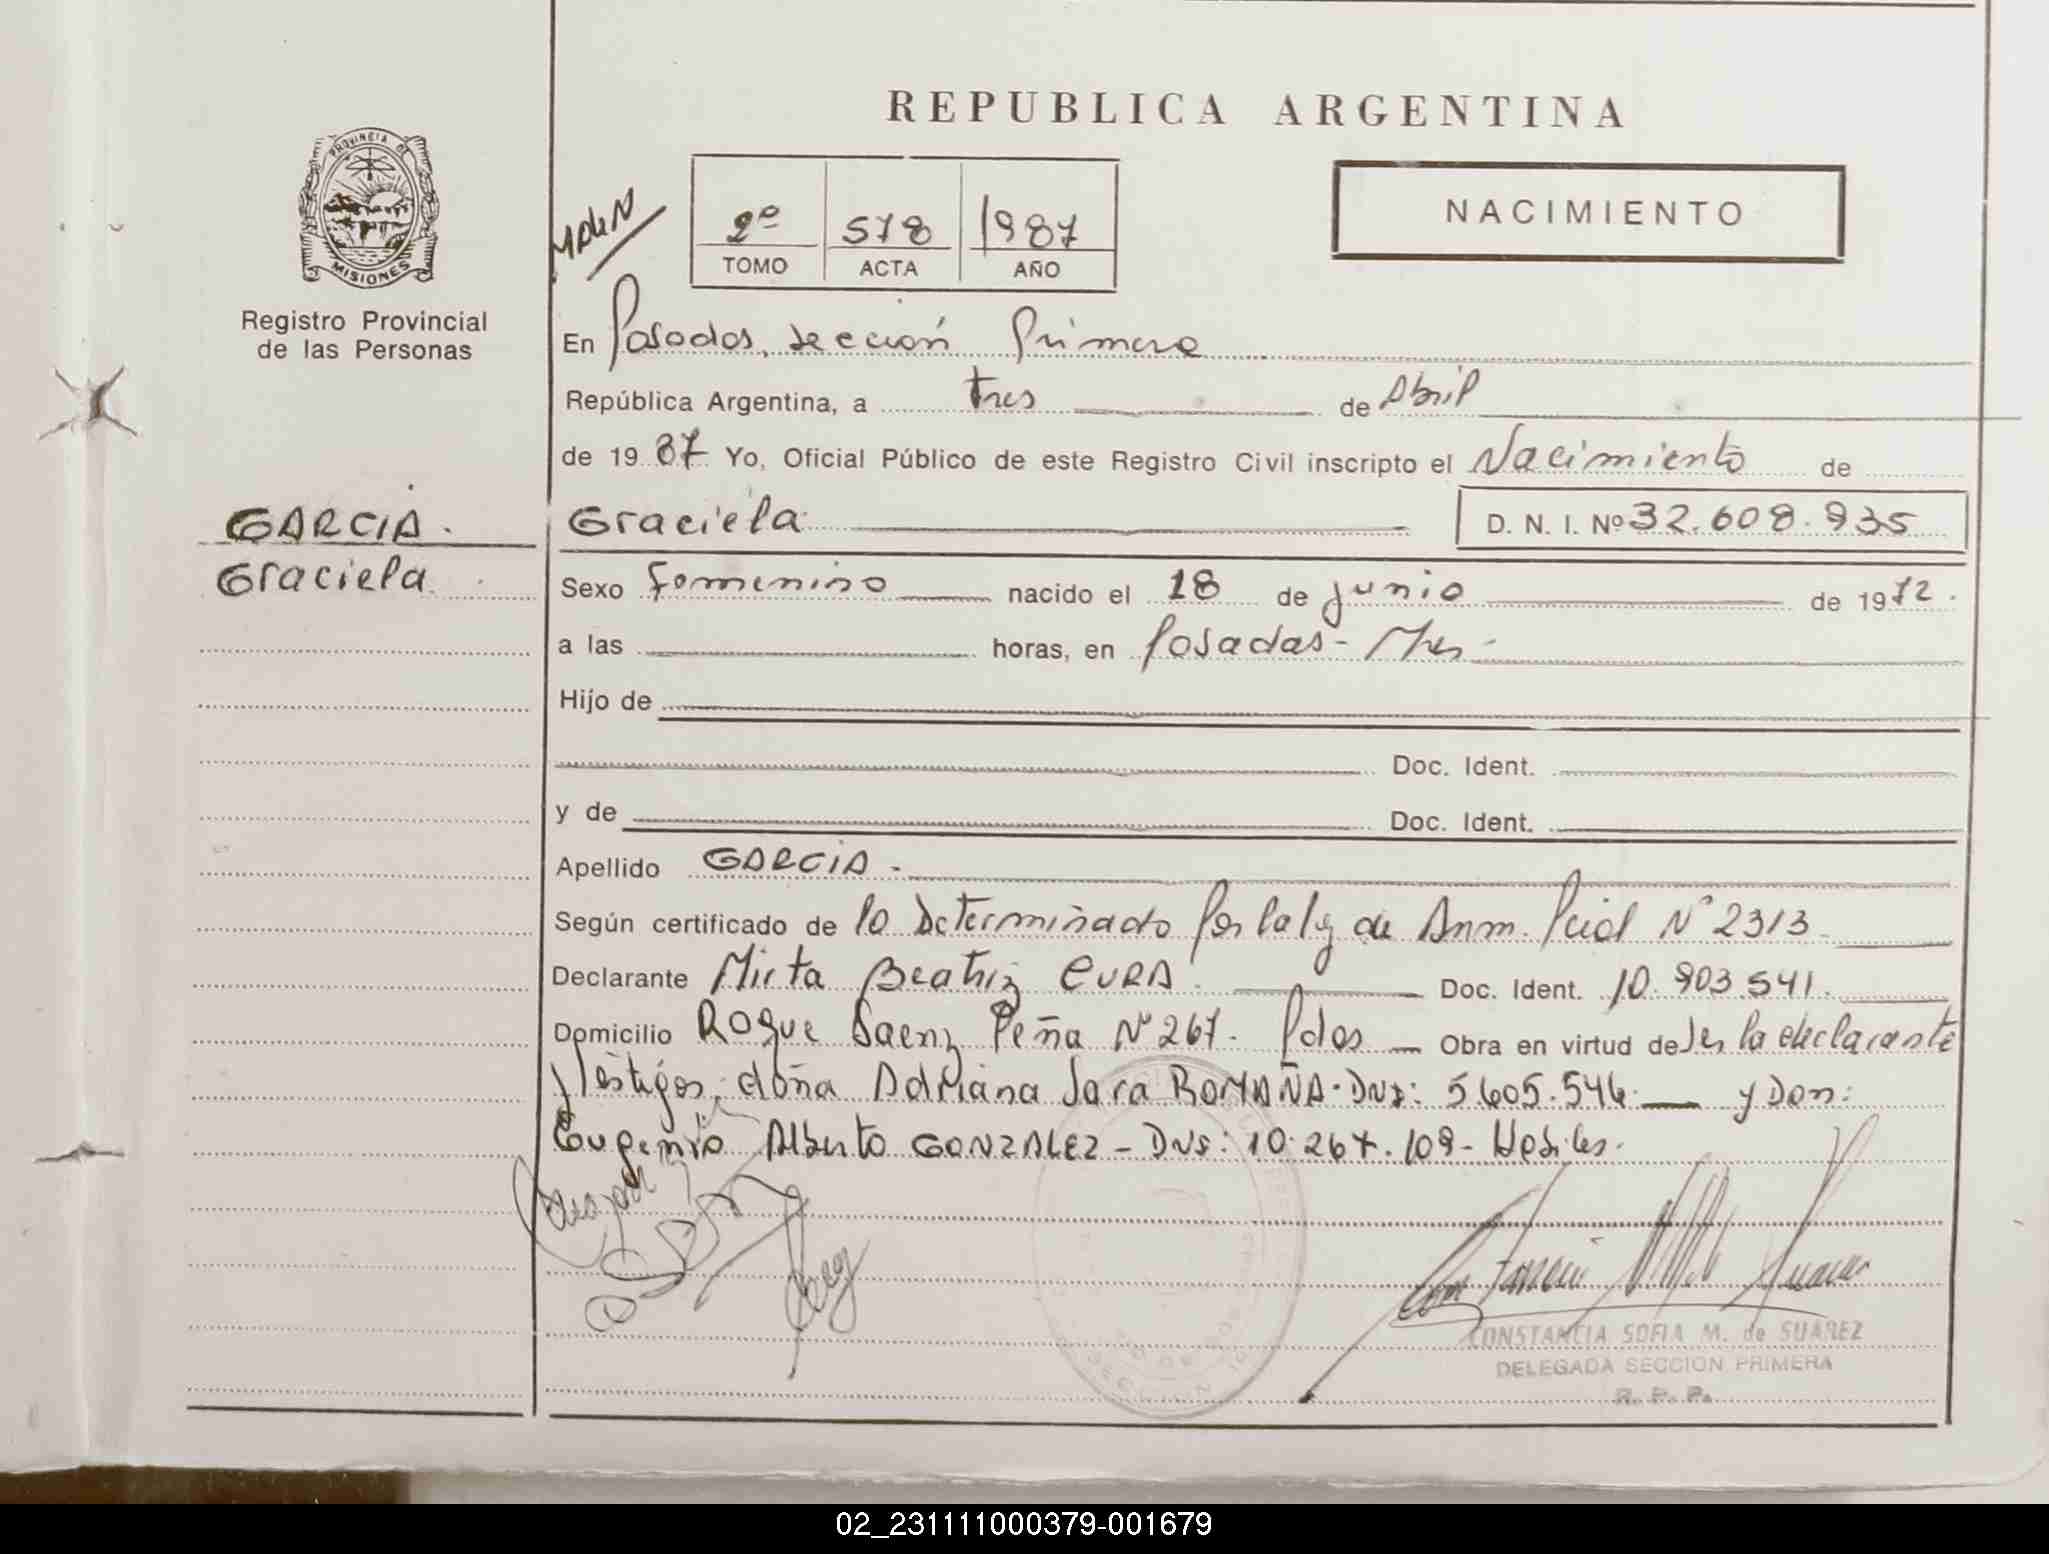 REPUBLICA ARGENTINA
PROVINCIA DE
MISIONES
Registro Provincial
de las Personas
2º 578 1987
TOMO ACTA AÑO
NACIMIENTO
En Posadas, sección Primera
República Argentina, a tres de Abril
de 1987 Yo, Oficial Público de este Registro Civil inscripto el Nacimiento de
GARCIA.
Graciela
Graciela D. N. I. Nº 32.608.935
Sexo femenino nacido el 18 de junio de 1972.
a las horas, en Posadas - Mnes -
Hijo de
Doc. Ident.
y de Doc. Ident.
Apellido GARCIA.
Según certificado de lo Determinado por la ley de Anm. Pcial Nº 2313
Declarante Mirta Beatriz CURA. Doc. Ident. 10.903.541.
Domicilio Roque Saenz Peña Nº 267. Pdas Obra en virtud de ser la declarante
y testigos: doña Adriana Sara ROMAÑA - DNI: 5.605.546 y Don:
Eugenio Alberto GONZALEZ - DNI: 10.267.109 - Hábiles.
CONSTANCIA SOFIA M. de SUAREZ
DELEGADA SECCION PRIMERA
R. P. P.
02_231111000379-001679